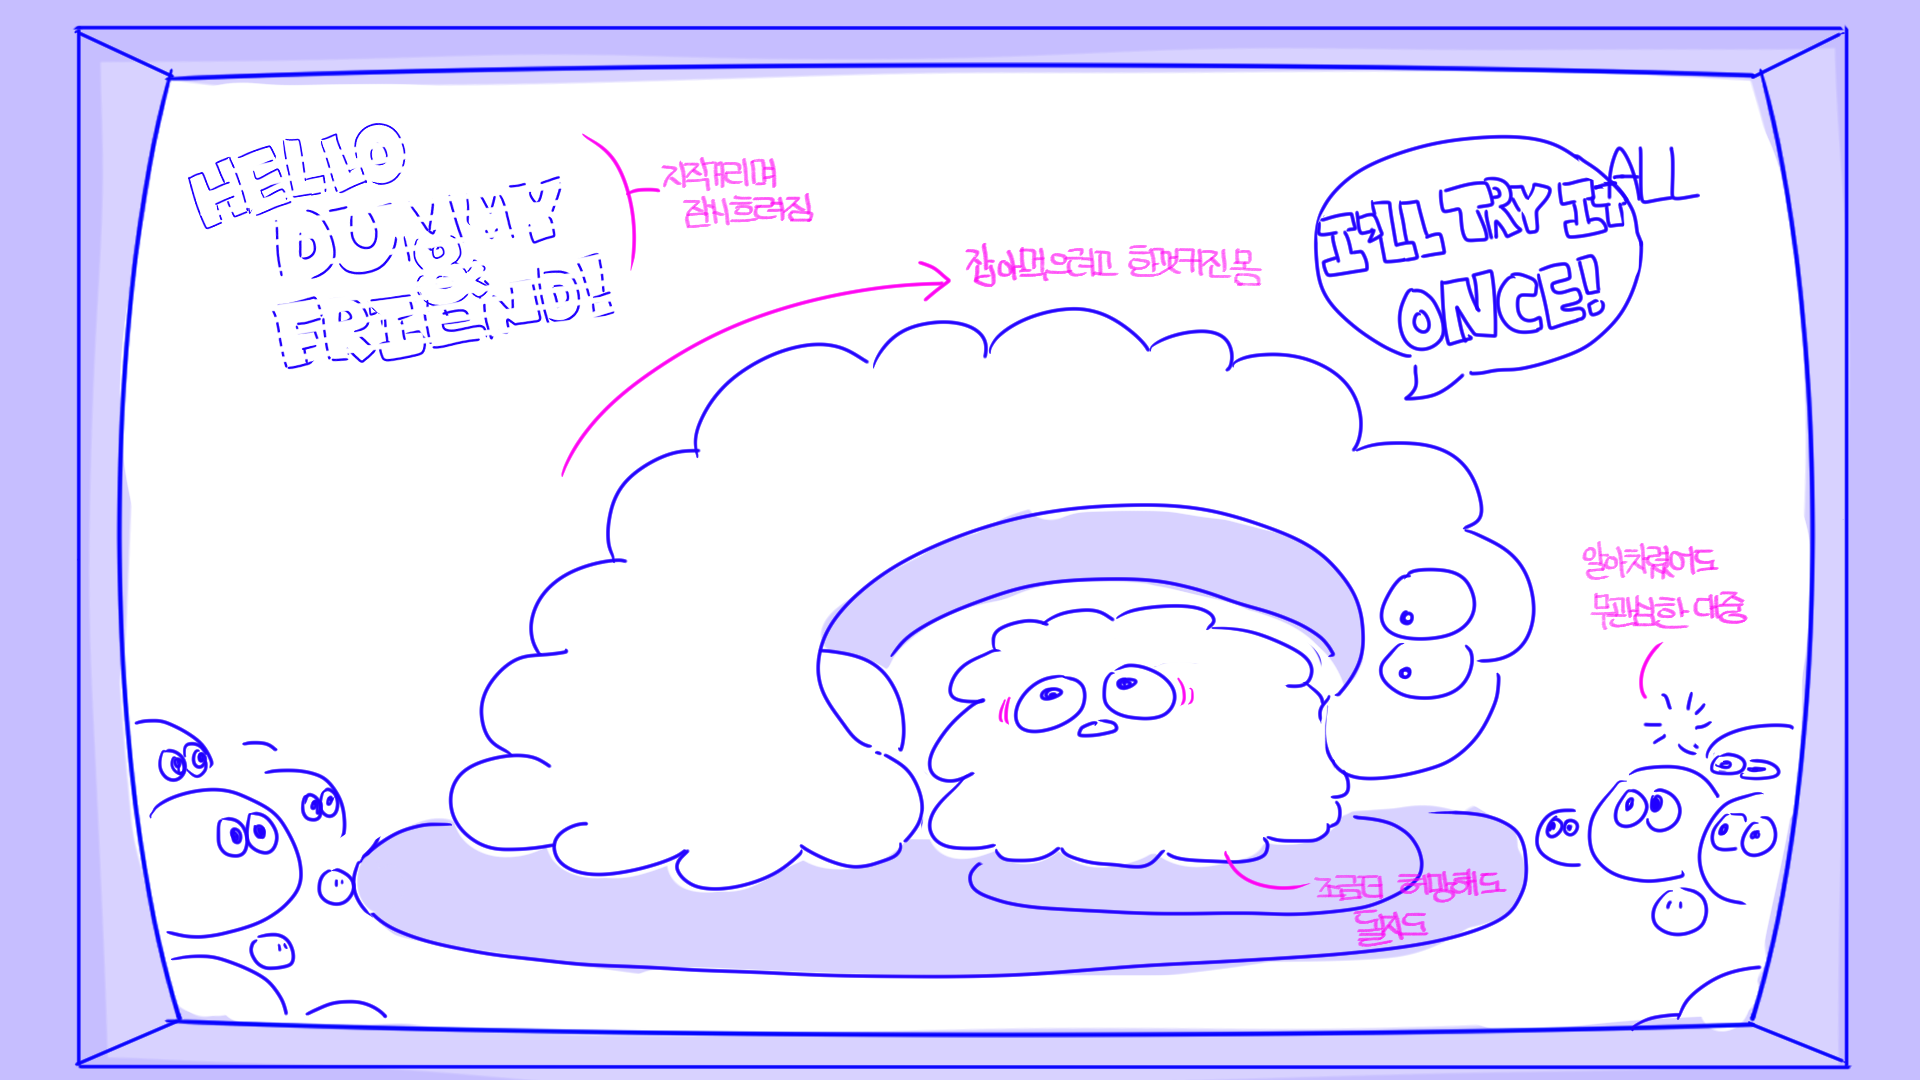 HELLO
DUMMY
&
FRIEND!
지직거리며
잠시흐려짐
잡아먹으려고 한껏커진몸
I'LL TRY IT ALL
ONCE!
알아차렸어도
무관심한 대중
조금더 허망해도
될지도